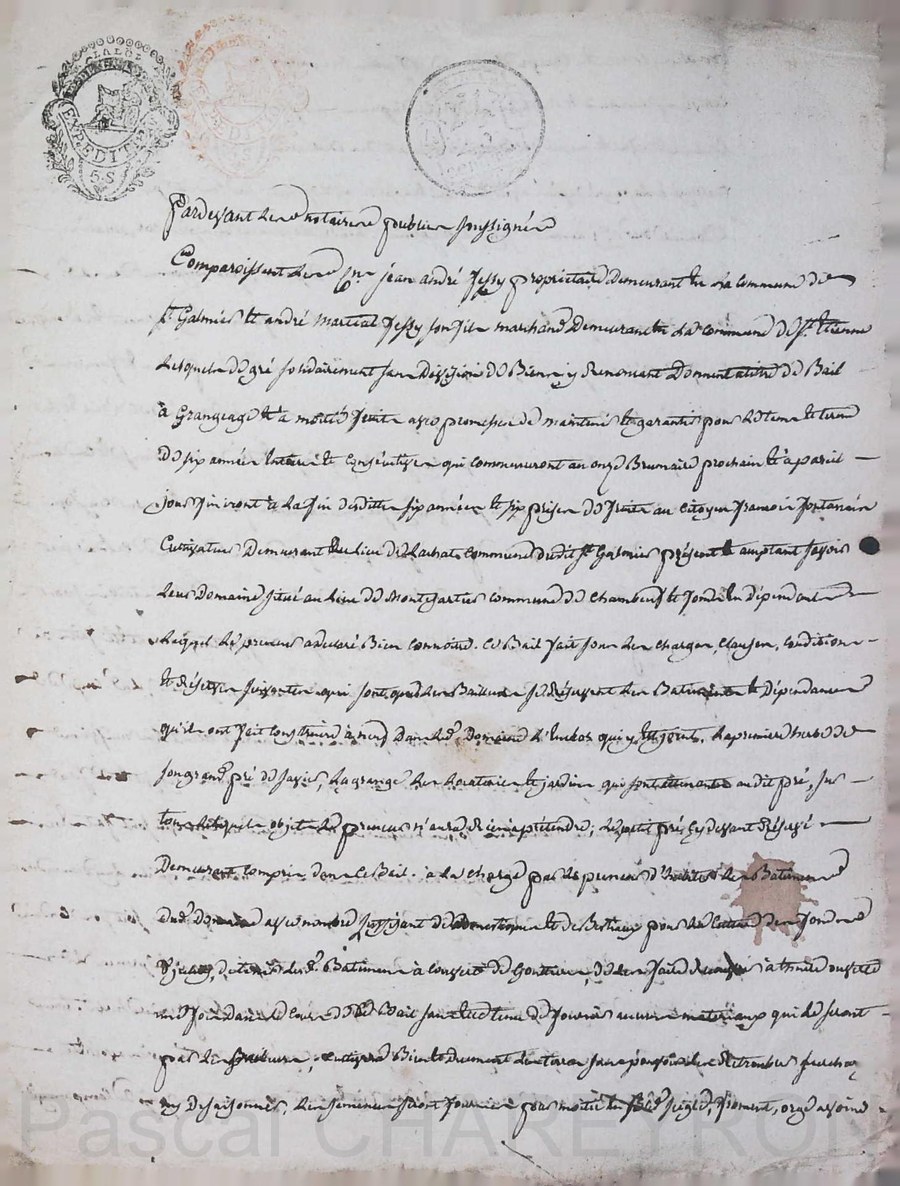 EXPEDITION
5. S
Pardevant les notaires publics soussignés
Comparoissent les Cns jean andré Jessy proprietaire demeurant en la commune de
st Galmier et andré martial Jessy son fils marchand Demeurant en la commune de st Etienne
Lesquels de gré solidairement sans Division de Biens y Renoncant Donnent a titre de Bail
à Grangeage et a moitié fruits avec promesse de maintenir et garantir pour le tems et terme
de six années entieres et Consécutives qui commenceront au onze Brumaire prochain et a pareil
jour finiront à la fin desdittes six années et six prises de fruits au citoyen francois
Cultivateur Demeurant au lieu de commune dudit st Galmier présent et acceptant savoir
leur Domaine situé au lieu de commune de Chambeuf et fonds en dépendants
Lequel le preneur a déclaré Bien Connoitre. ce Bail fait sous les charges, clauses, conditions
et Réserves suivantes qui sont que les Bailleurs se Réservent les Batiments et Dépendances
qu'ils ont fait construire à neuf Dans led. Domaine qui y est joint, la premiere herbe de
son grand pré de la grange les locateries et jardin qui sont attenants audit pré, sur
tous lesquels objets le preneur n'aura Rien a prétendre; le petit pré cy devant Réservé
Demeurant compris dans le Bail. a la charge par le preneur d'habiter les Batiments
dud. Domaine avec nombre suffisant de domestiques et de Bestiaux pour la culture des fonds
d'iceluy, de tenir lesd. Batiments à couvert de Gouttieres, de les faire à thuile ouverte
une fois dans le cours dud. Bail sans etre tenu de fournir aucuns matériaux qui le seront
par les Bailleurs, cultivera Bien et duement les terres sans pouvoir les
ny Desaisonner, les semences seront fournies par moitié en Bled seigle, froment, orge avoine
Pascal CHAREYRON